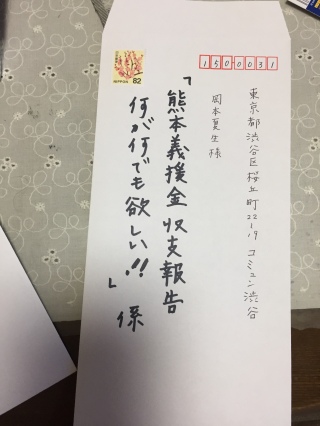 1500031
東京都渋谷区桜丘町22-19 コミュン渋谷
岡本夏生様
「熊本義援金 収支報告
何が何でも欲しい!!」係
NIPPON 82